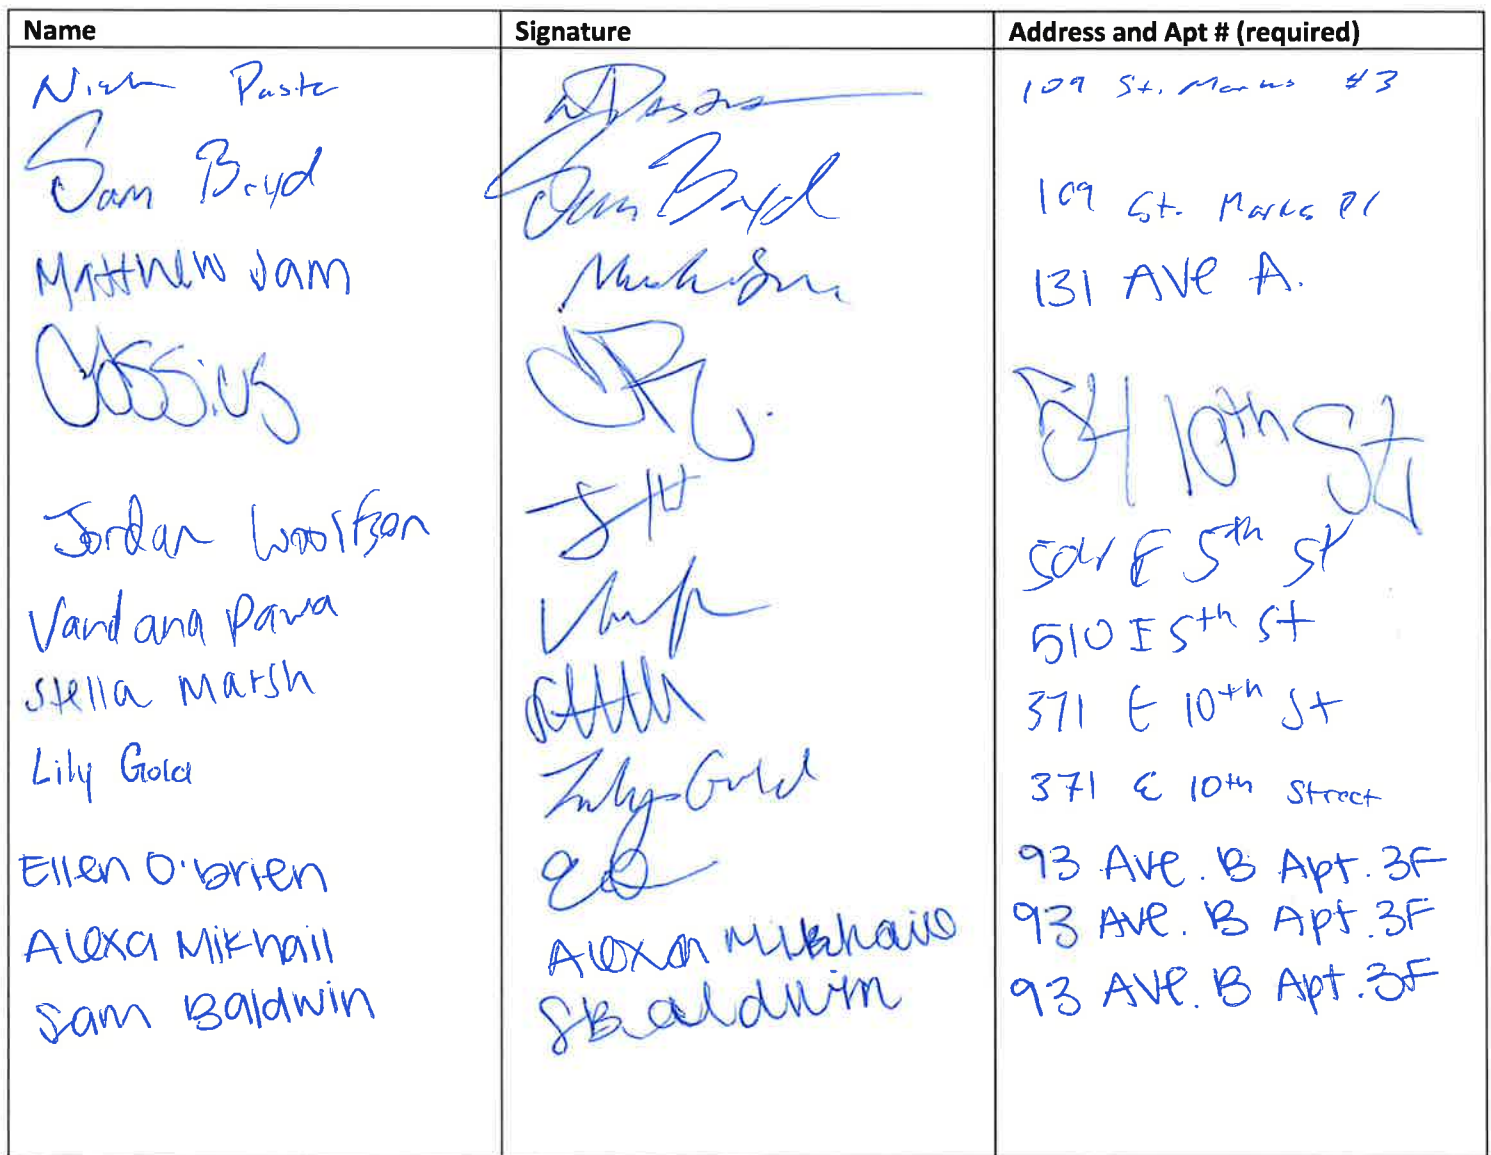 Name Signature Address and Apt # (required)
Nick 109 St. Marks #3
Sam Boyd Sam Boyd 109 St. Marks Pl
Matthew Jam 131 Ave A.
Cassius 54 10th St
Jordan Woolfson E 5th St
Vandana Pawa 510 E 5th St
Stella Marsh 371 E 10th St
Lily Gold Lily Gold 371 E 10th Street
Ellen O'brien 93 Ave. B Apt. 3F
Alexa Mikhail Alexa Mikhail 93 Ave. B Apt. 3F
Sam Baldwin SBaldwin 93 Ave. B Apt. 3F